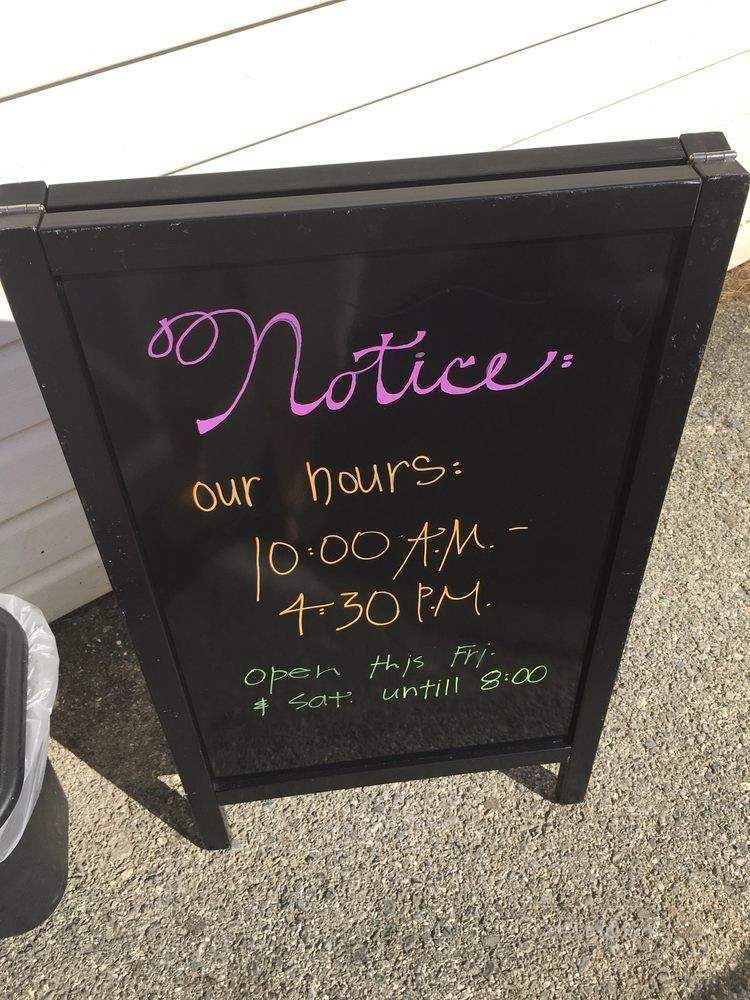 Notice:
our hours:
10:00 A.M. -
4:30 P.M.
open this Fri.
& Sat. untill 8:00